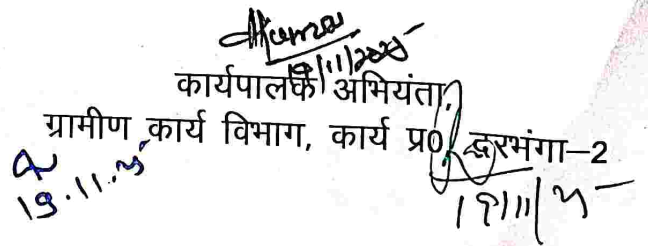 19/11/2025
कार्यपालक अभियंता,
ग्रामीण कार्य विभाग, कार्य प्र०, दरभंगा–2
19.11.25
19/11/25